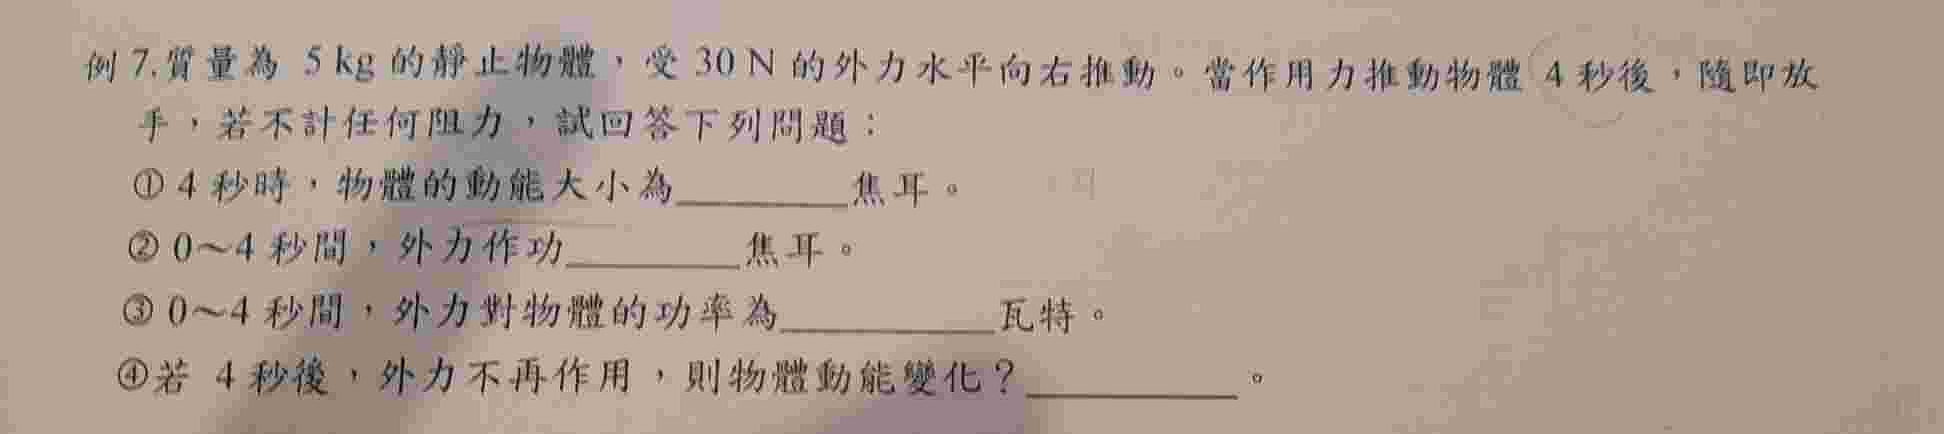 例 7.質量為 5 kg 的靜止物體，受 30 N 的外力水平向右推動。當作用力推動物體 4 秒後，隨即放
手，若不計任何阻力，試回答下列問題：
① 4 秒時，物體的動能大小為________焦耳。
② 0～4 秒間，外力作功________焦耳。
③ 0～4 秒間，外力對物體的功率為__________瓦特。
④若 4 秒後，外力不再作用，則物體動能變化？__________。